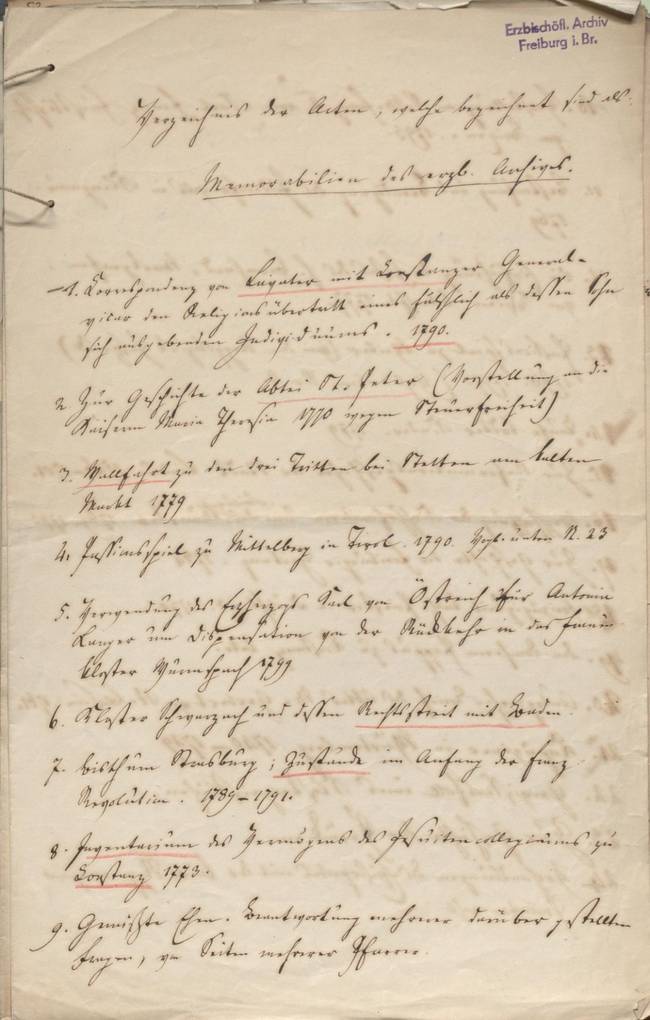 Erzbischöfl. Archiv
Freiburg i. Br.
Verzeichnis der Acten, welche bezeichnet sind als
Memorabilien des erzb. Archives.
1. Correspondenz von Lavater mit Constanzer General-
vicar den Religionsübertritt eines fälschlich als dessen Sohn
sich ausgebenden Individuums. 1790.
2 Zur Geschichte der Abtei St. Peter (Vorstellung an die
Kaiserin Maria Theresia 1770 wegen Steuerfreiheit)
3. Wallfahrt zu den drei Tritten bei Stetten am kalten
Markt 1779
4. Passionsspiel zu Mittelberg in Tirol. 1790. Vgl. unten N. 23
5. Verwendung des Erzherzogs Karl von Östreich für Antonia
Langer um Dispensation von der Rückkehr in das Frauen
kloster Wurmspach 1799
6. Kloster Schwarzach und dessen Rechtsstreit mit Baden.
7. Bisthum Strasburg; Zustände im Anfang der franz.
Revolution. 1789-1791.
8. Inventarium des Vermögens des Jesuitencollegiums zu
Constanz 1773.
9. Gemischte Ehen. Beantwortung mehrerer darüber gestellten
Fragen, von Seiten mehrerer Pfarrer.